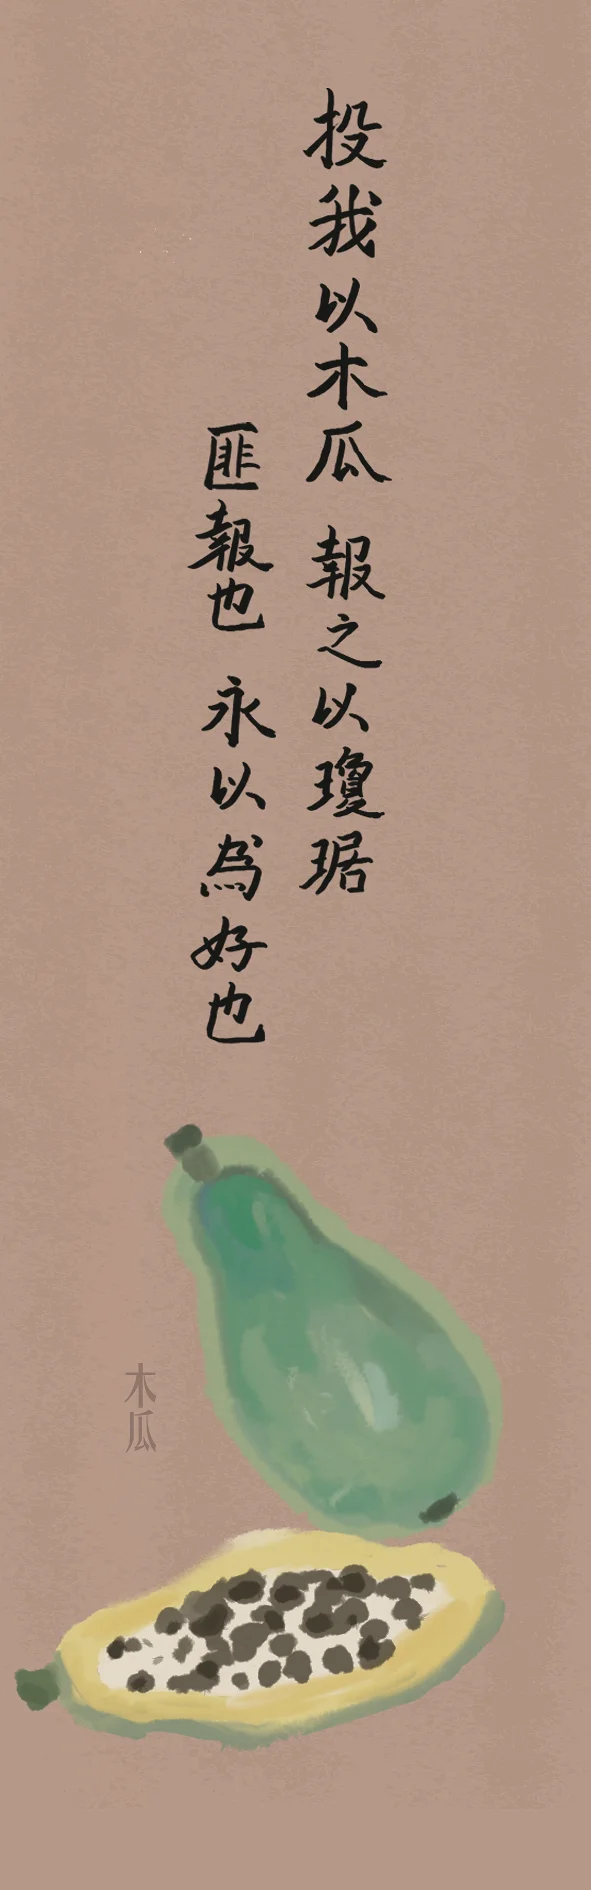 投我以木瓜 報之以瓊琚
匪報也 永以為好也
木瓜